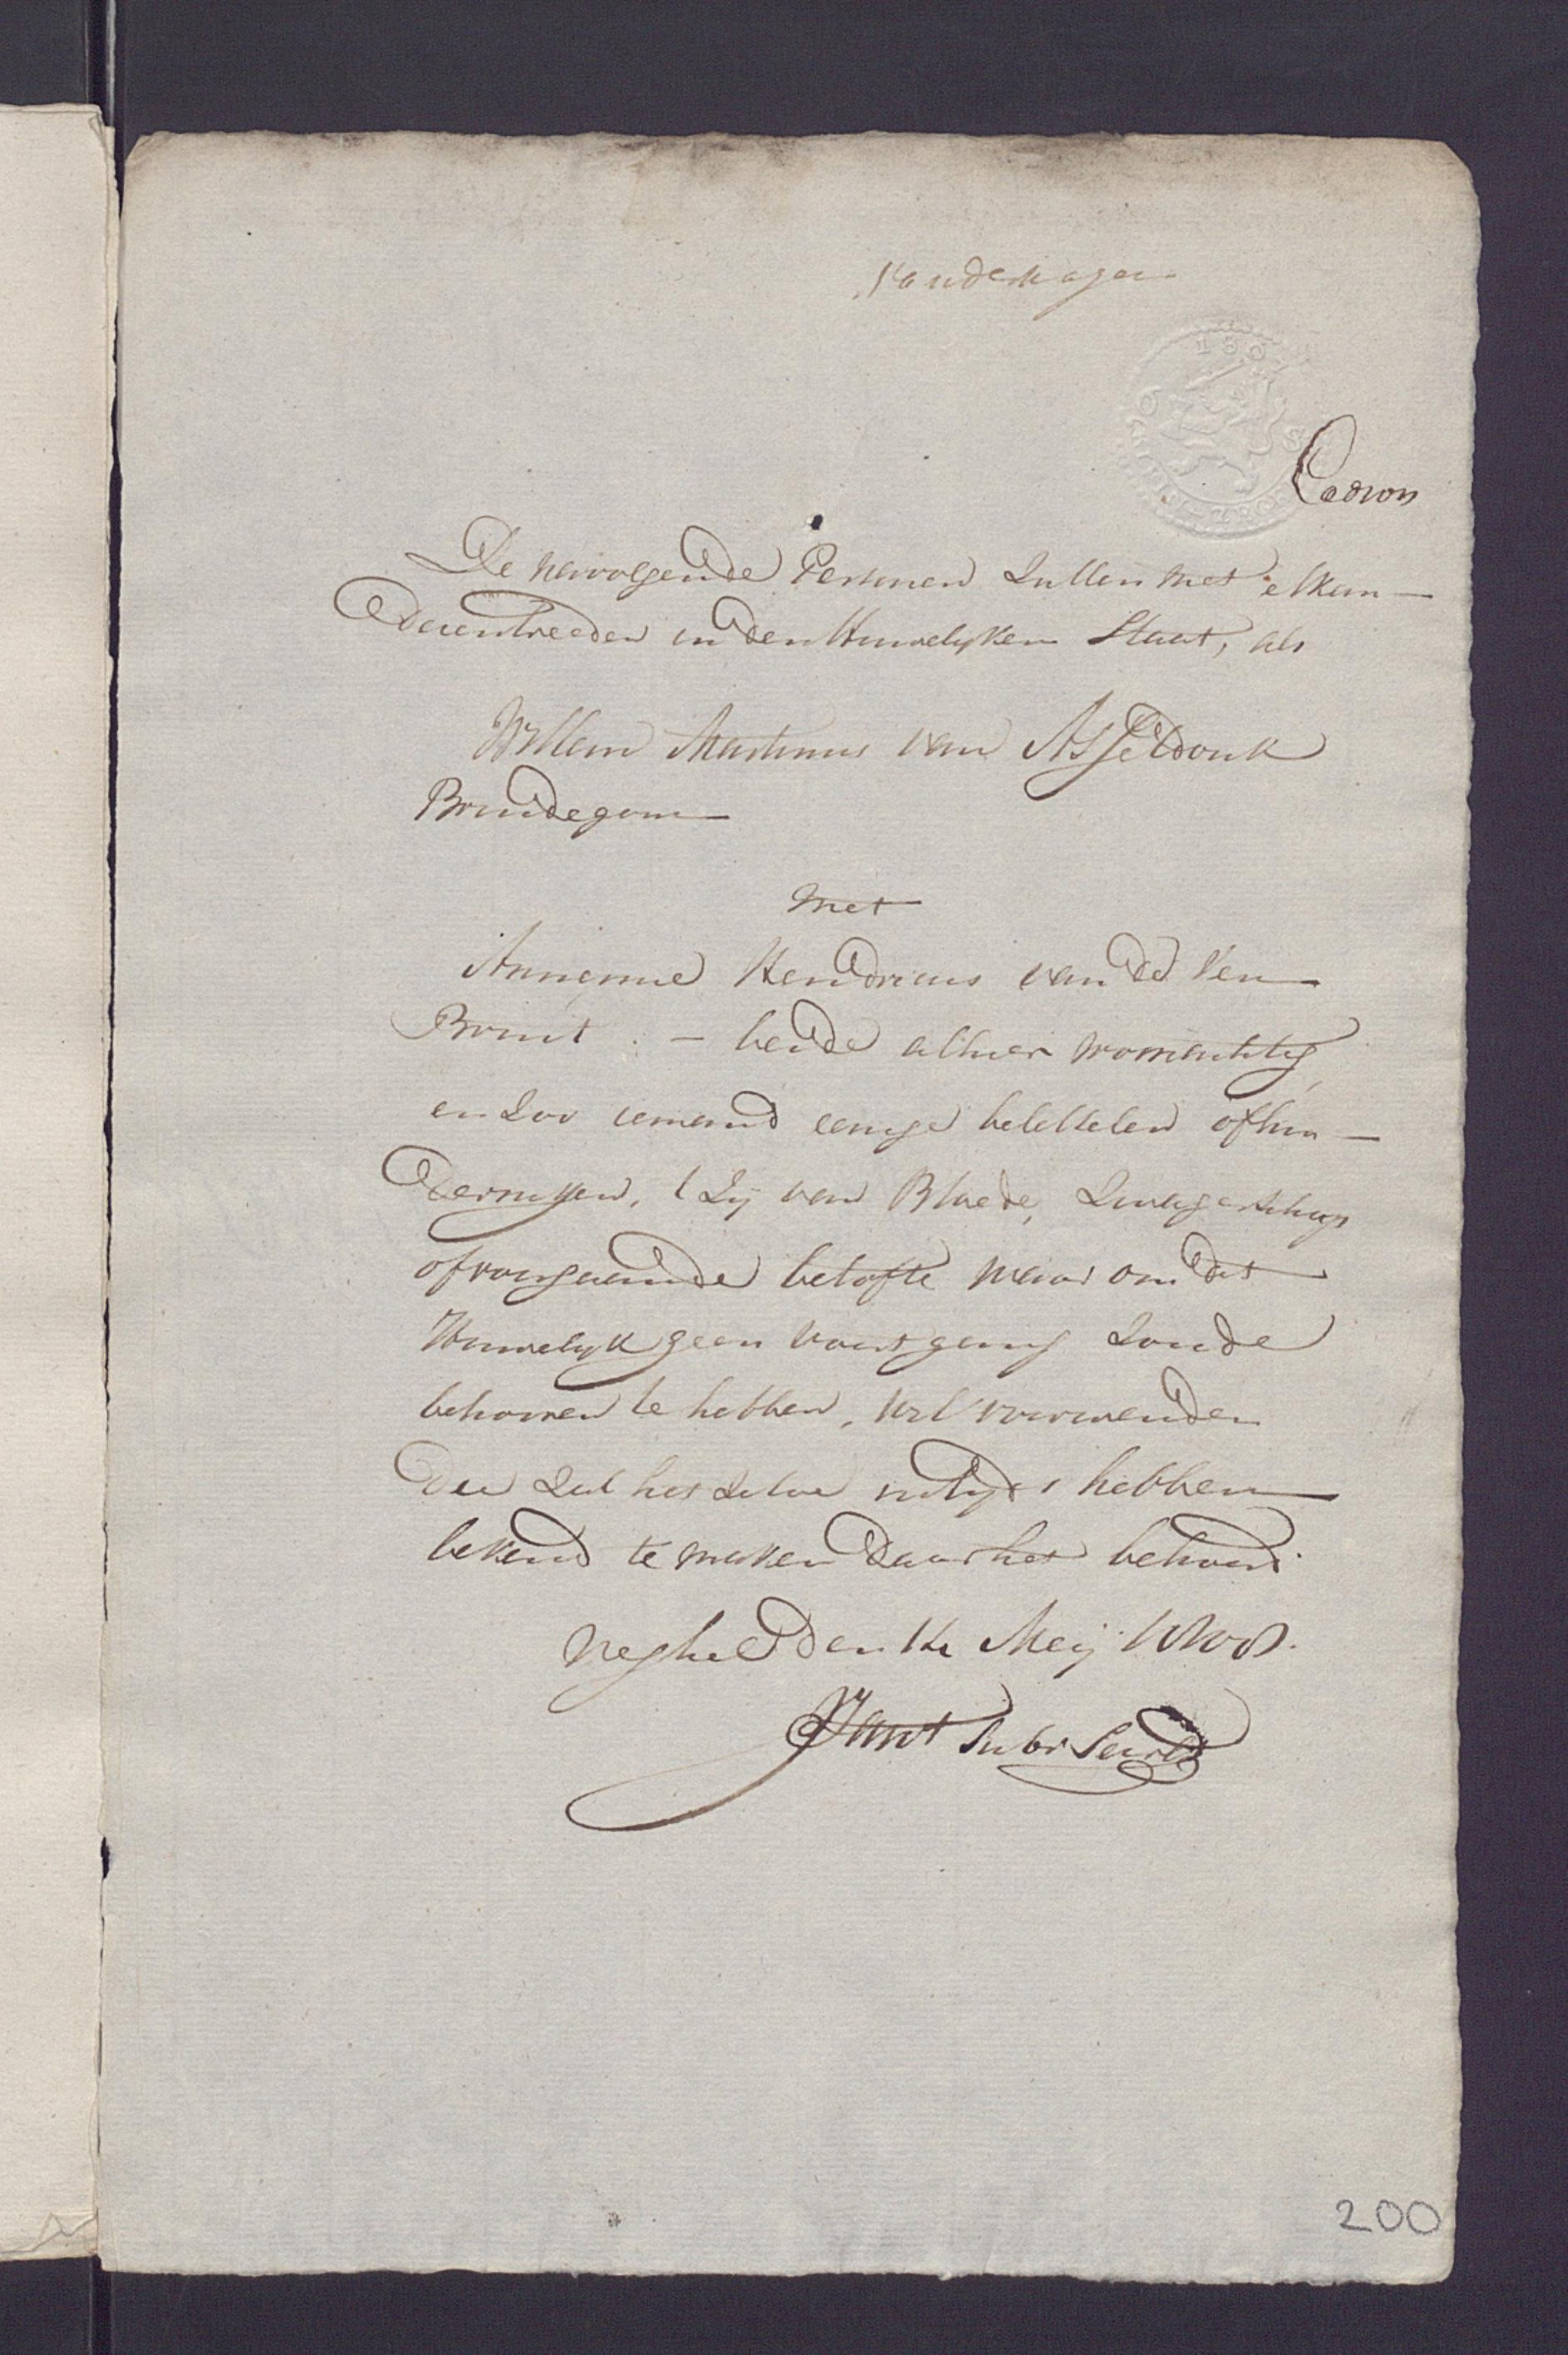 Vanderhagen
180
De navolgende Persoonen Zullen met elkan-
der entreeden in den Huwelyken Staat, als
Willem Martinus van Asseldonk
Bruidegom
Met
Annemie Hendricus van de Ven
Bruit. - beide alhier woonachtig
en Zoo iemand eenige beletselen of hin-
dernissen, t Zij van Bloede, Zwagerschap
of voorgaande belofte waar om dit
Huwelyk geen voortgang Zoude
behooren te hebben, wil voorwenden
die Zal het Zelve in tyds hebben
bekend te maken daar het behoord
Veghel den 14 Meij 1808.
Subt Secrts
200